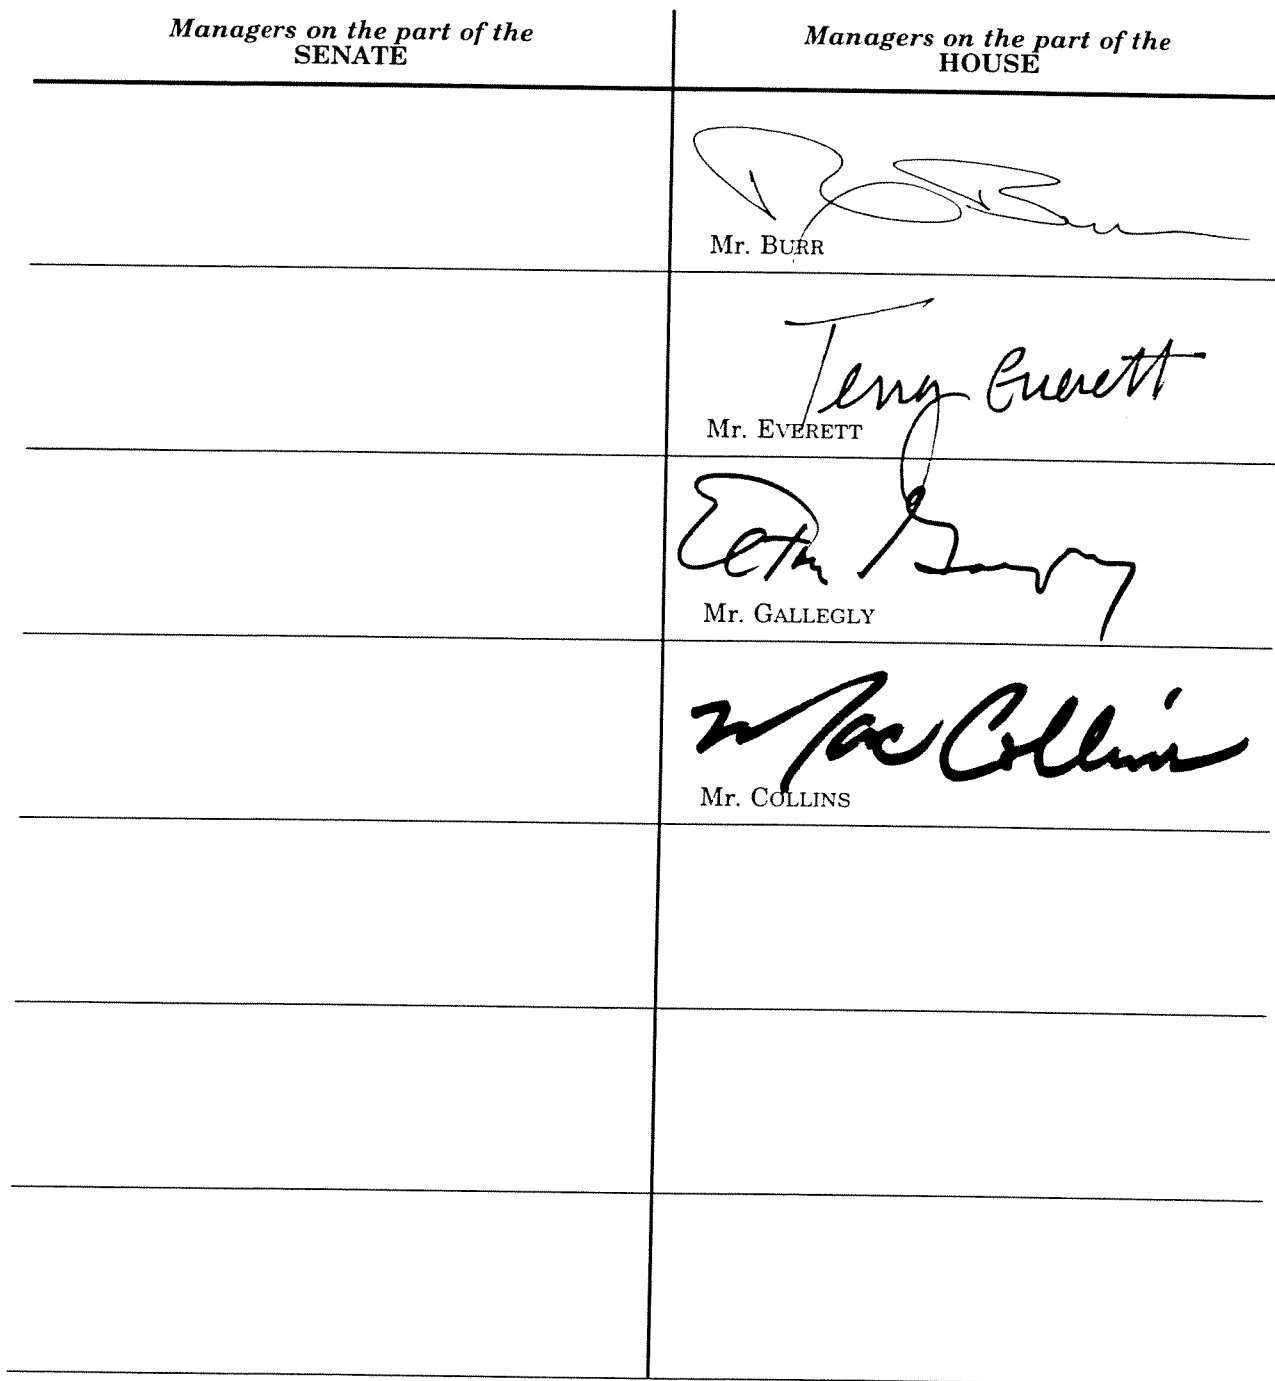 Managers on the part of the
SENATE
Managers on the part of the
HOUSE
Mr. BURR
Terry Everett
Mr. EVERETT
Elton Gallegly
Mr. GALLEGLY
Mac Collins
Mr. COLLINS